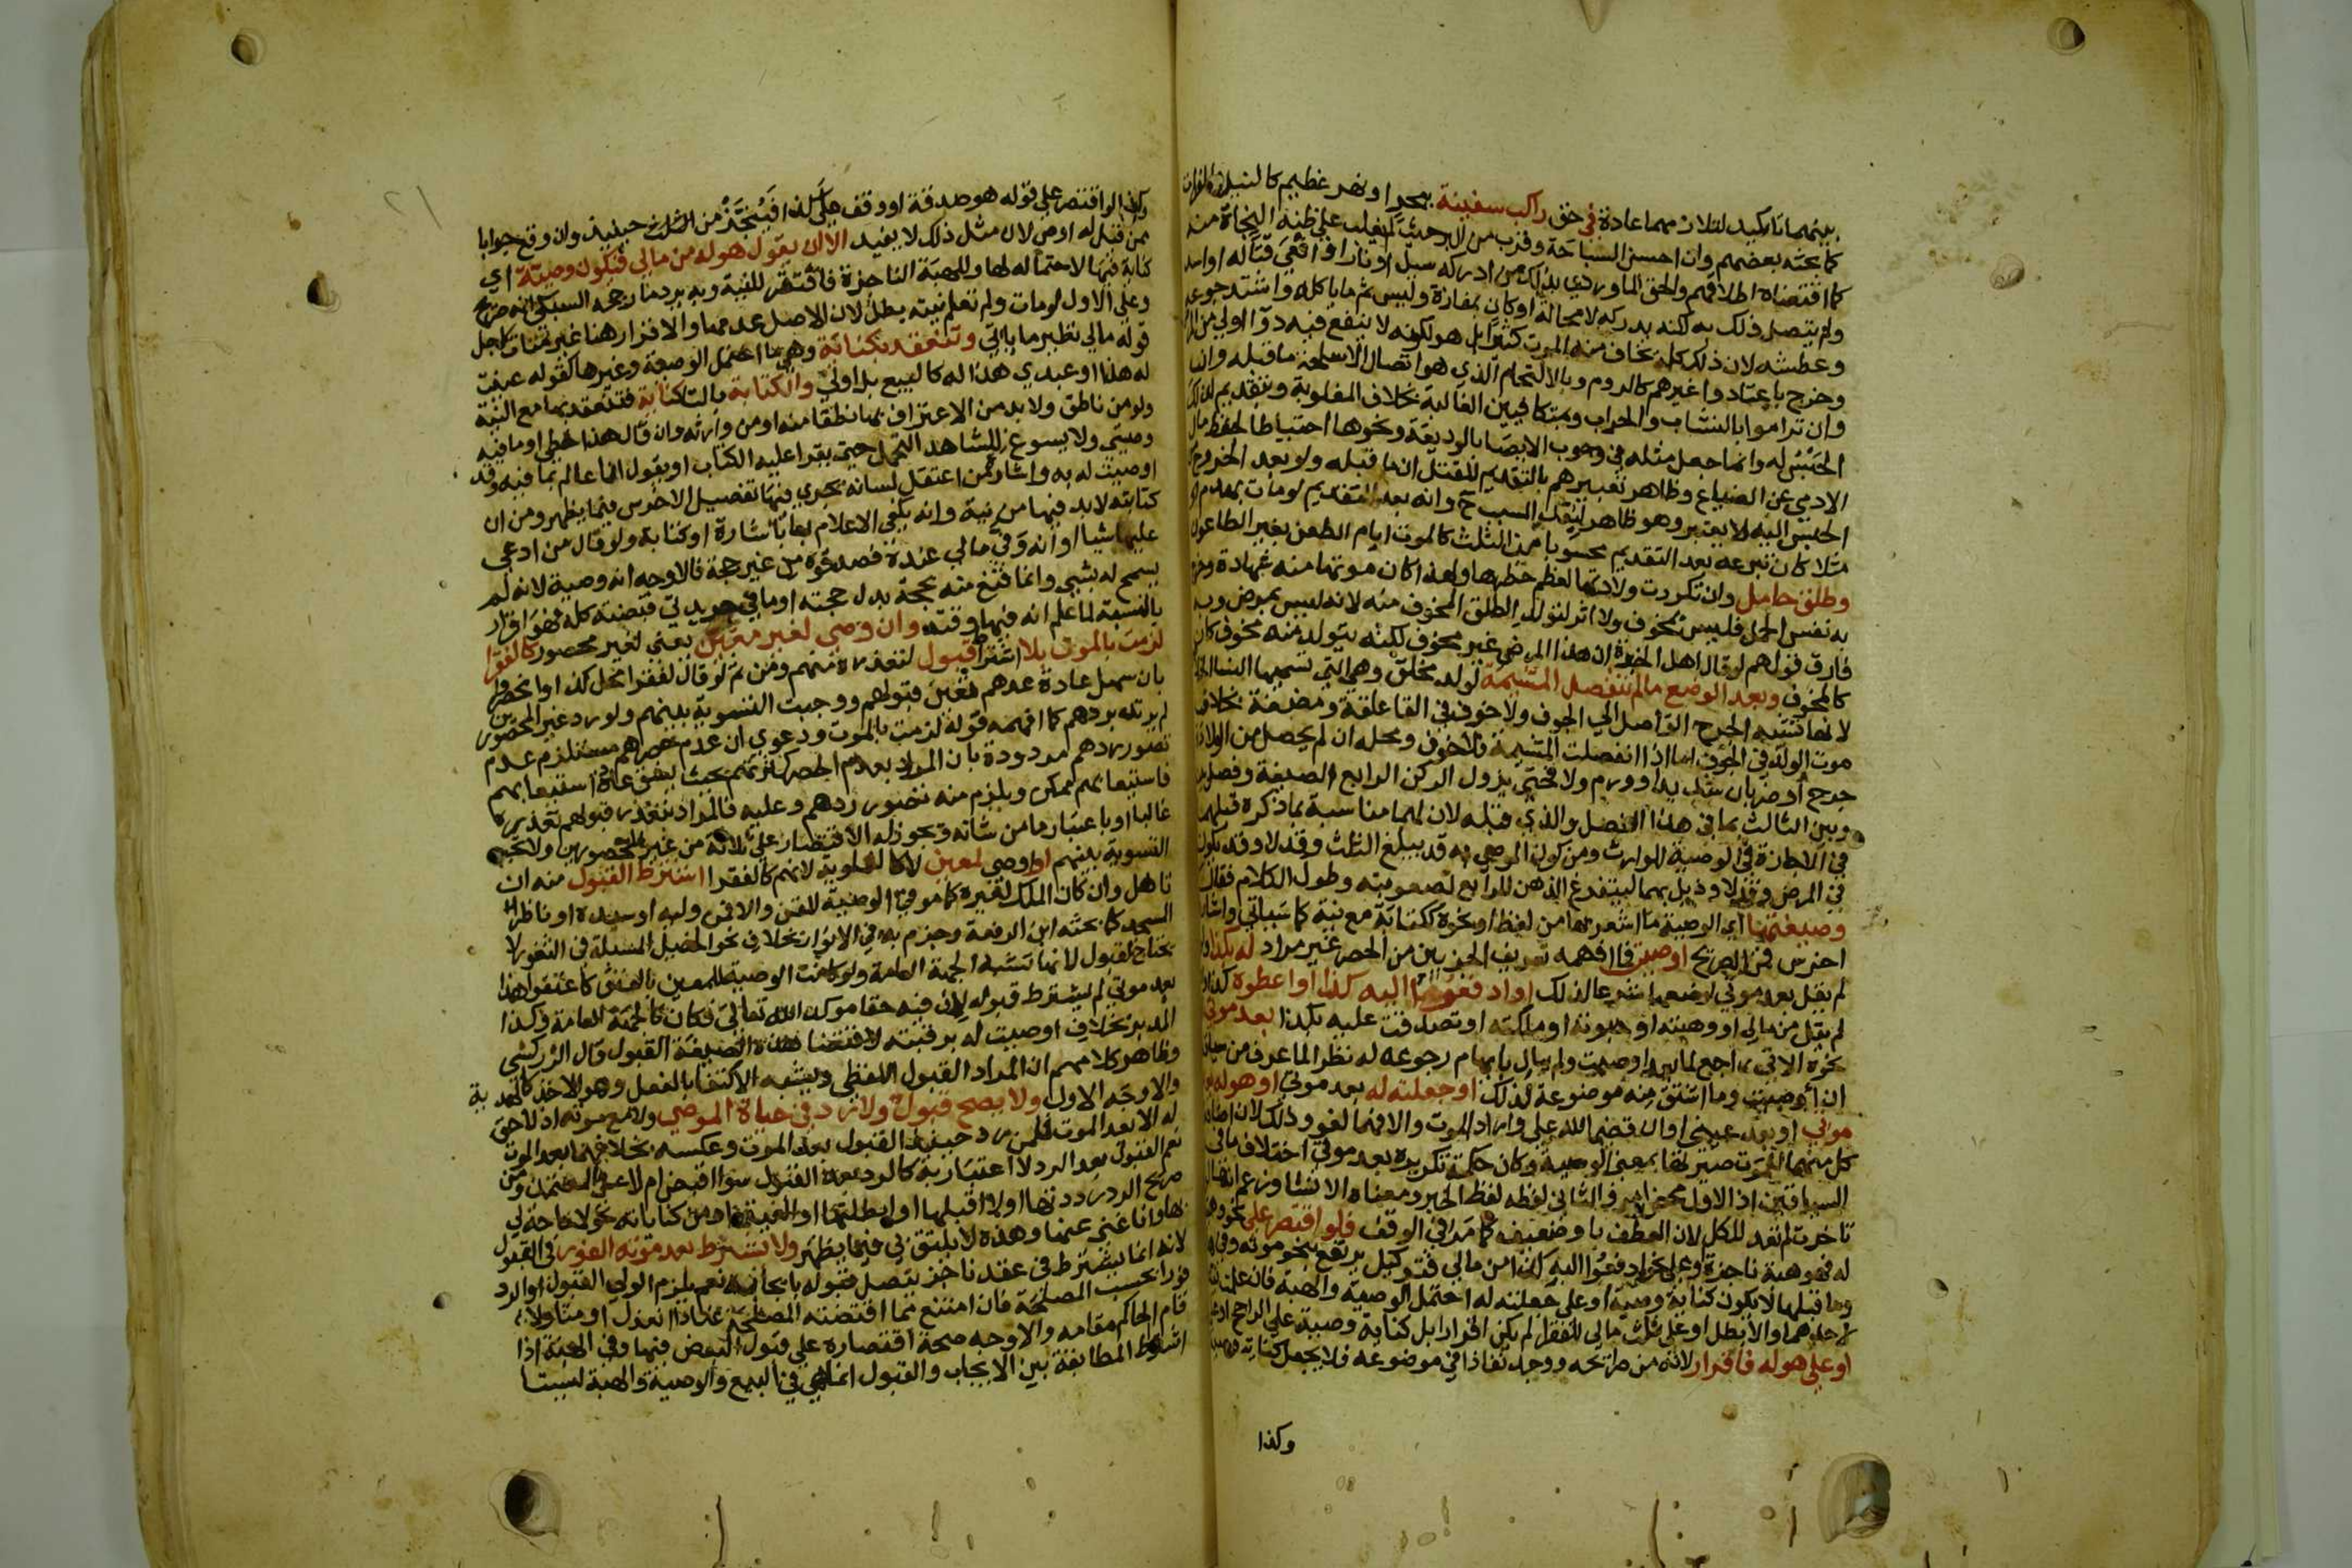 بينهما تاكيد لتلازمهما عادة في حق راكب سفينة ببحر او نهر عظيم كالنيل والفرات
كما بحثه بعضهم وان احسن السباحة وقرب من البر حيث لم يغلب على ظنه النجاة منه
كما اقتضاه اطلاقهم والحق الماوردي بذلك من ادركه سيل او نار او افعى قتاله او اسد
ولم يتصل ذلك به لكنه يدركه لا محالة او كان بمفازة وليس ثم ما ياكله واشتد جوعه
وعطشه لان ذلك كله يخاف منه الموت كثيرا بل هو لكونه لا ينفع فيه دوا اولى من
وخرج باعتاد واغيرهم كالروم وبالالتحام الذي هو اتصال الاسلحة ما قبله وان
وان تراموا بالنشاب والحراب وبمتكافيين الغالبة بخلاف المغلوبة وبتقديم لذلك
الحبس له وانما جعل مثله في وجوب الايصا بالوديعة ونحوها احتياطا لحفظ مال
الادمي عن الضياع وظاهر تعبيرهم بالتقديم للقتل ان ما قبله ولو بعد الخروج
الحبس اليه لا يعتبر وهو ظاهر لبعد السبب ح وانه بعد التقديم لو مات بهدم او
مثلا كان تبرعه بعد التقديم محسوبا من الثلث كالموت ايام الطعن بغير الطاعون
وطلق حامل وان تكررت ولادتها لعظم خطرها ولهذا كان موتها منه شهادة وخرج
به نفس الحمل فليس بمخوف ولا اثر لتولد الطلق المخوف منه لانه ليس بمرض وبه
فارق قولهم لو قال اهل الخبرة ان هذا المرض غير مخوف لكنه يتولد منه مخوف كان
كالمخوف وبعد الوضع ما لم تنفصل المشيمة لولد مخلق وهي التي تسميها النسا الخلاص
لانها تشبه الجرح الواصل الى الجوف ولا خوف في القا علقة ومضغة بخلاف
موت الولد في الجوف اما اذا انفصلت المشيمة فلا خوف ومحله ان لم يحصل من الولادة
جرح او ضربان شديد او ورم والا فحتى يزول الركن الرابع الصيغة وفصل بينه
وبين الثالث بما في هذا الفصل والذي قبله لان لهما مناسبة بما ذكره قبلهما
في الاجازة في الوصية للوارث ومن كون الموصى به قد يبلغ الثلث وقد لا وقد يكون
في المرض وقد لا وذيل بهما ليتفرغ الذهن للرابع لصعوبته وطول الكلام فقال
وصيغتها اي الوصية ما اشعر بها من لفظ او نحوه ككتابة مع نية كما سياتي واشارة
اخرس فمن الصريح اوصيت فما افهمه تعريف الجزيين من الحصر غير مراد له بكذا وان
لم يقل بعد موتي لوضعها شرعا لذلك او ادفعوا اليه كذا او اعطوه كذا وان
لم يقل من مالي او وهبته او حبوته او ملكته او تصدقت عليه بكذا بعد موتي
نحوه الاتي راجع لما بعد اوصيت ولم يبال بايهام رجوعه له نظرا لما عرف من سياق
ان اوصيت وما اشتق منه موضوعة لذلك او جعلته له بعد موتي او هو له بعد
موتي او بعد عيني او ان قضى الله علي واراد الموت والا فهما لغو وذلك لان اضافة
كل منهما للموت صيرتها بمعنى الوصية وكان حكمة تكريره بعد موتي اختلاف ما في
السياقين اذ الاول محض امر والثاني لفظه لفظ الخبر ومعناه الانشا وزعم انها لو
تاخرت لم تعد للكل لان العطف باو ضعيف كما مر في الوقف فلو اقتصر على نحو وهبته
له فهو هبة ناجزة وعلى نحو ادفعوا اليه كذا من مالي فتوكيل يرتفع بنحو موته وفي هذه
وما قبلها لا يكون كناية وصية او على جعلته له احتمل الوصية والهبة فان علمت نيته
لاحدهما والا بطل او على ثلث مالي للفقرا لم يكن اقرارا بل كناية وصية على الراجح
او على هو له فاقرار لانه من صرايحه ووجد نفاذا في موضوعه فلا يجعل كناية
وكذا
وكذا لو اقتصر على قوله هو صدقة او وقف على كذا فينجز من الثلث حينيذ وان وقع جوابا
ممن قيل له اوص لان مثل ذلك لا يفيد الا ان يقول هو له من مالي فيكون وصية اي
كناية فيها لاحتماله لها وللهبة الناجزة فافتقر للنية وبه يرد ما رجحه السبكي انه صريح
وعلى الاول لو مات ولم تعلم نيته بطل لان الاصل عدمها والاقرار هنا غير متات لاجل
قوله مالي نظير ما ياتي وتنعقد بكناية وهي ما احتمل الوصية وغيرها كقوله عينت
له هذا او عبدي هذا له كالبيع بل اولى والكتابة بالتا كناية فتنعقد بها مع النية
ولو من ناطق ولا بد من الاعتراف بها نطقا منه او من وارثه وان قال هذا خطي وما فيه
وصيتي ولا يسوغ للشاهد التحمل حتى يقرا عليه الكتاب او يقول انا عالم بما فيه وقد
اوصيت له به واشارة من اعتقل لسانه يجري فيها تفصيل الاخرس فيما يظهر ومن ان
كتابته لا بد فيها من نية وانه يكفي الاعلام بها باشارة او كتابة ولو قال من ادعى
علي شيا او انه وفى مالي عنده فصدقوه من غير حجة فالاوجه انه وصية لانه لم
يسمح له بشي وانما قنع منه بحجة بدل حجته او ما في جريدتي قبضته كله فهو اقرار
بالنسبة لما علم انه فيها وقته وان وصى لغير معين يعني لغير محصور كالفقرا
لزمت بالموت بلا اشتراط قبول لتعذره منهم ومن ثم لو قال لفقرا محل كذا وانحصروا
بان سهل عادة عدهم تعين قبولهم ووجبت التسوية بينهم ولو رد غير المحصور
لم يرتد بردهم كما افهمه قوله لزمت بالموت ودعوى ان عدم حصرهم مستلزم عدم
تصور ردهم مردودة بان المراد بعدم الحصر كثرتهم بحيث يشق عادة استيعابهم
فاستيعابهم ممكن ويلزم منه تصور ردهم وعليه فالمراد بتعذر قبولهم تعذره
غالبا او باعتبار ما من شانه ويجوز له الاقتصار على ثلاثة من غير المحصورين ولا تجب
التسوية بينهم او وصى لمعين لا كالعلوية لانهم كالفقرا اشترط القبول منه ان
تاهل وان كان الملك لغيره كما في الوصية للقن والا فمن وليه او سيده او ناظر
المسجد كما بحثه ابن الرفعة وجزم به في الانوار بخلاف نحو الخيل المسبلة في الثغور لا
تحتاج لقبول لانها تشبه الجهة العامة ولو كانت الوصية للمعين بالعتق كاعتقوا هذا
بعد موتي لم يشترط قبوله لان فيه حقا موكدا لله تعالى فكان كالجهة العامة وكذا
المدبر بخلاف اوصيت له برقبته لاقتضا هذه الصيغة القبول قال الزركشي
وظاهر كلامهم ان المراد القبول اللفظي ويشبه الاكتفا بالفعل وهو الاخذ كالهدية
والاوجه الاول ولا يصح قبول ولا رد في حياة الموصي ولا مع موته اذ لا حق
له الا بعد الموت فلمن رد حينيذ القبول بعد الموت وعكسه بخلافهما بعد الموت
نعم القبول بعد الرد لا اعتبار به كالرد بعد القبول سوا اقبض ام لا على المعتمد ومن
صريح الرد رددتها او لا اقبلها او ابطلتها او الغيتها ومن كناياته نحو لا حاجة لي
بها وانا غني عنها وهذه لا تليق بي فيما يظهر ولا يشترط بعد موته الفور في القبول
لانه انما يشترط في عقد ناجز يتصل قبوله بايجابه نعم يلزم الولي القبول او الرد
فورا بحسب المصلحة فان امتنع مما اقتضته المصلحة عنادا انعزل او متاولا
قام الحاكم مقامه والاوجه صحة اقتصاره على قبول البعض فيها وفي الهبة اذا
اشتراط المطابقة بين الايجاب والقبول انما هي في البيع والوصية والهبة ليستا